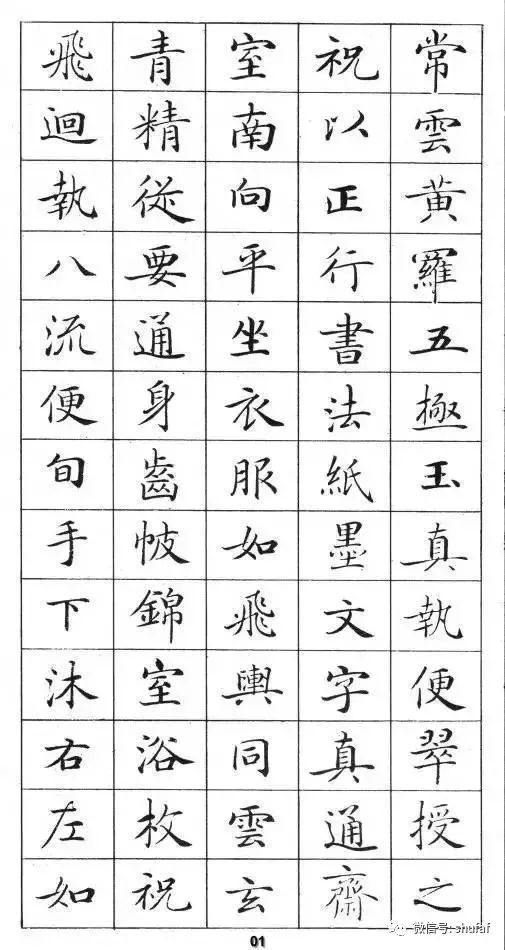 常雲黄羅五極玉真執便翠授之
祝以正行書法紙墨文字真通齋
室南向平坐衣服如飛輿同雲玄
青精從要通身齒帔錦室浴枚祝
飛迴執八流便旬手下沐右左如
01
微信号: shufaf